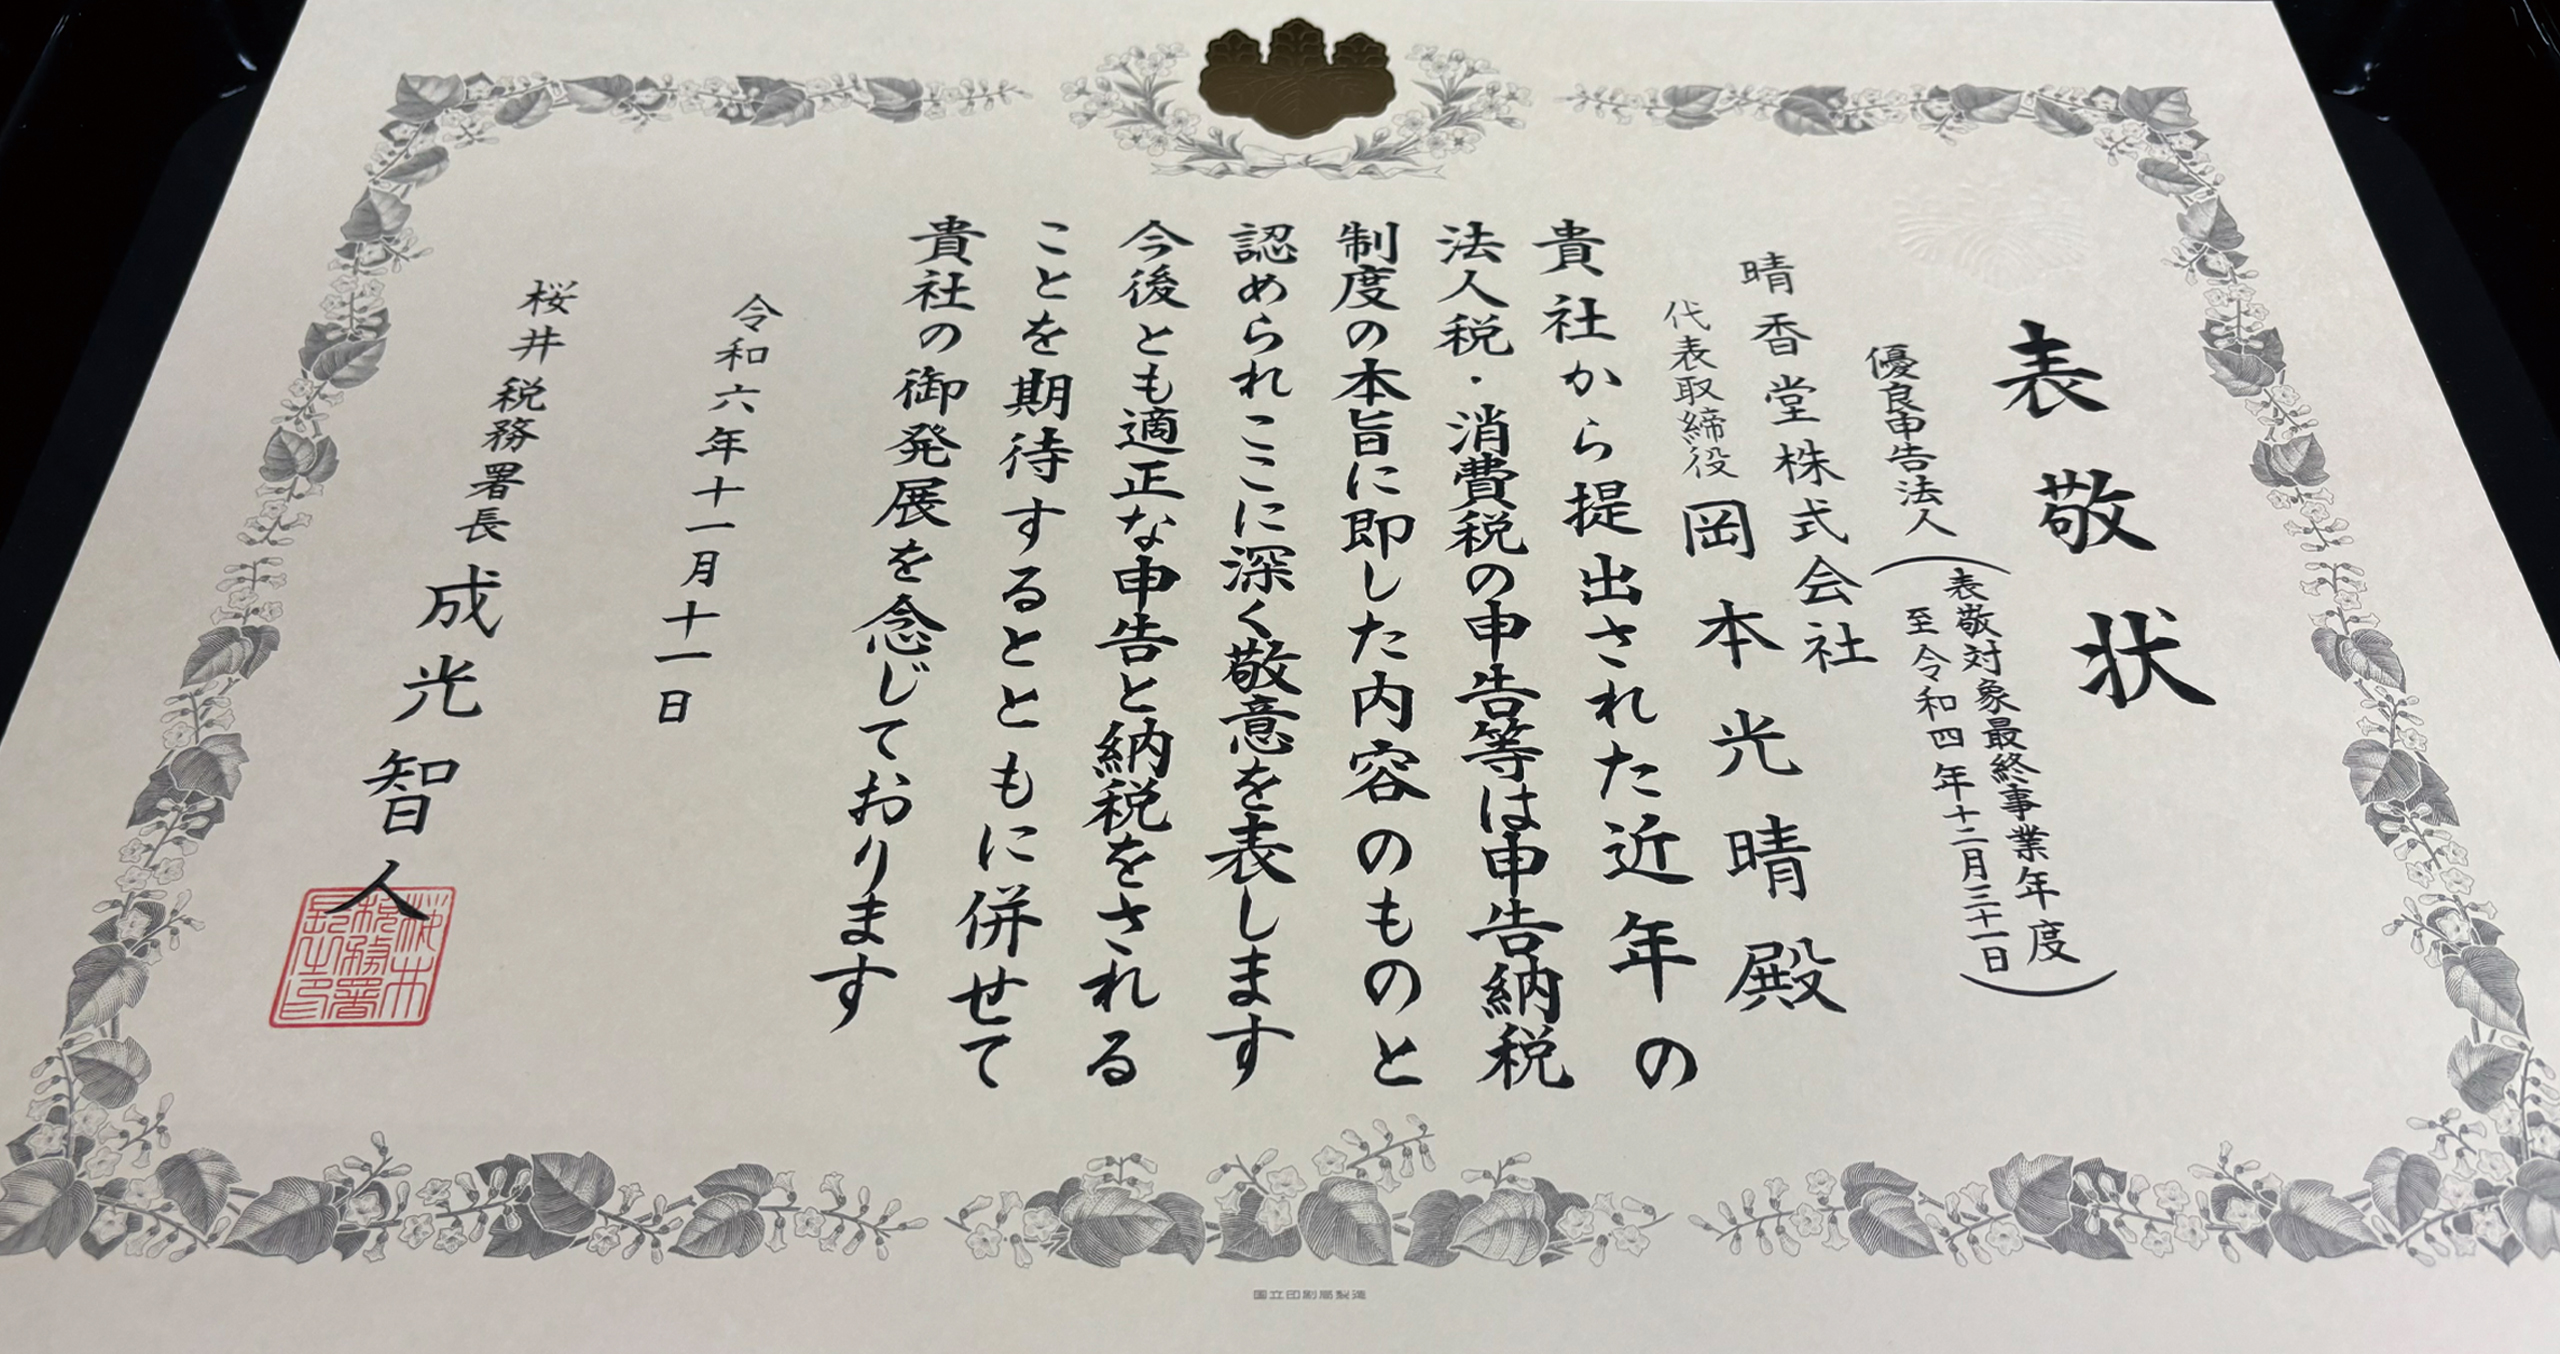 表敬状
優良申告法人
(表敬対象最終事業年度
至令和四年十二月三十一日)
晴香堂株式会社
代表取締役 岡本光晴殿
貴社から提出された近年の
法人税・消費税の申告等は申告納税
制度の本旨に即した内容のものと
認められここに深く敬意を表します
今後とも適正な申告と納税をされる
ことを期待するとともに併せて
貴社の御発展を念じております
令和六年十一月十一日
桜井税務署長 成光智人
桜井
税務署
長之印
国立印刷局製造